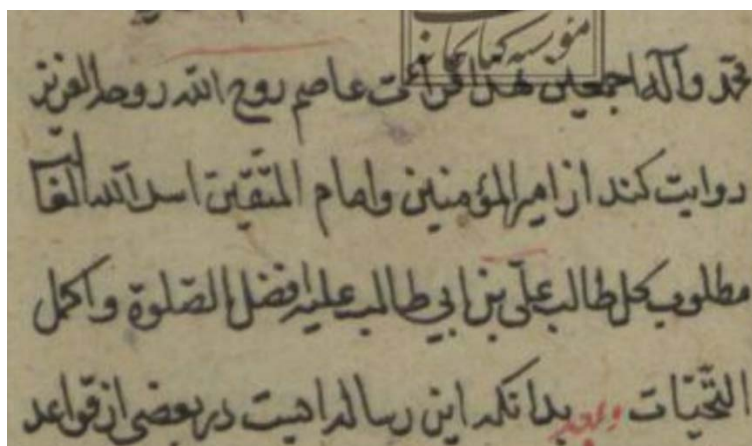 مؤسسه کتابخانه
محمد وآله اجمعین هذا قرائت عاصم روح الله روحه العزیز
روایت کند از امیرالمؤمنین وامام المتقین اسد الله الغالب
مطلوب کل طالب علی بن ابی طالب علیه افضل الصلوة واکمل
التحیّات وبعد بدانکه این رساله ایست در بعضی از قواعد